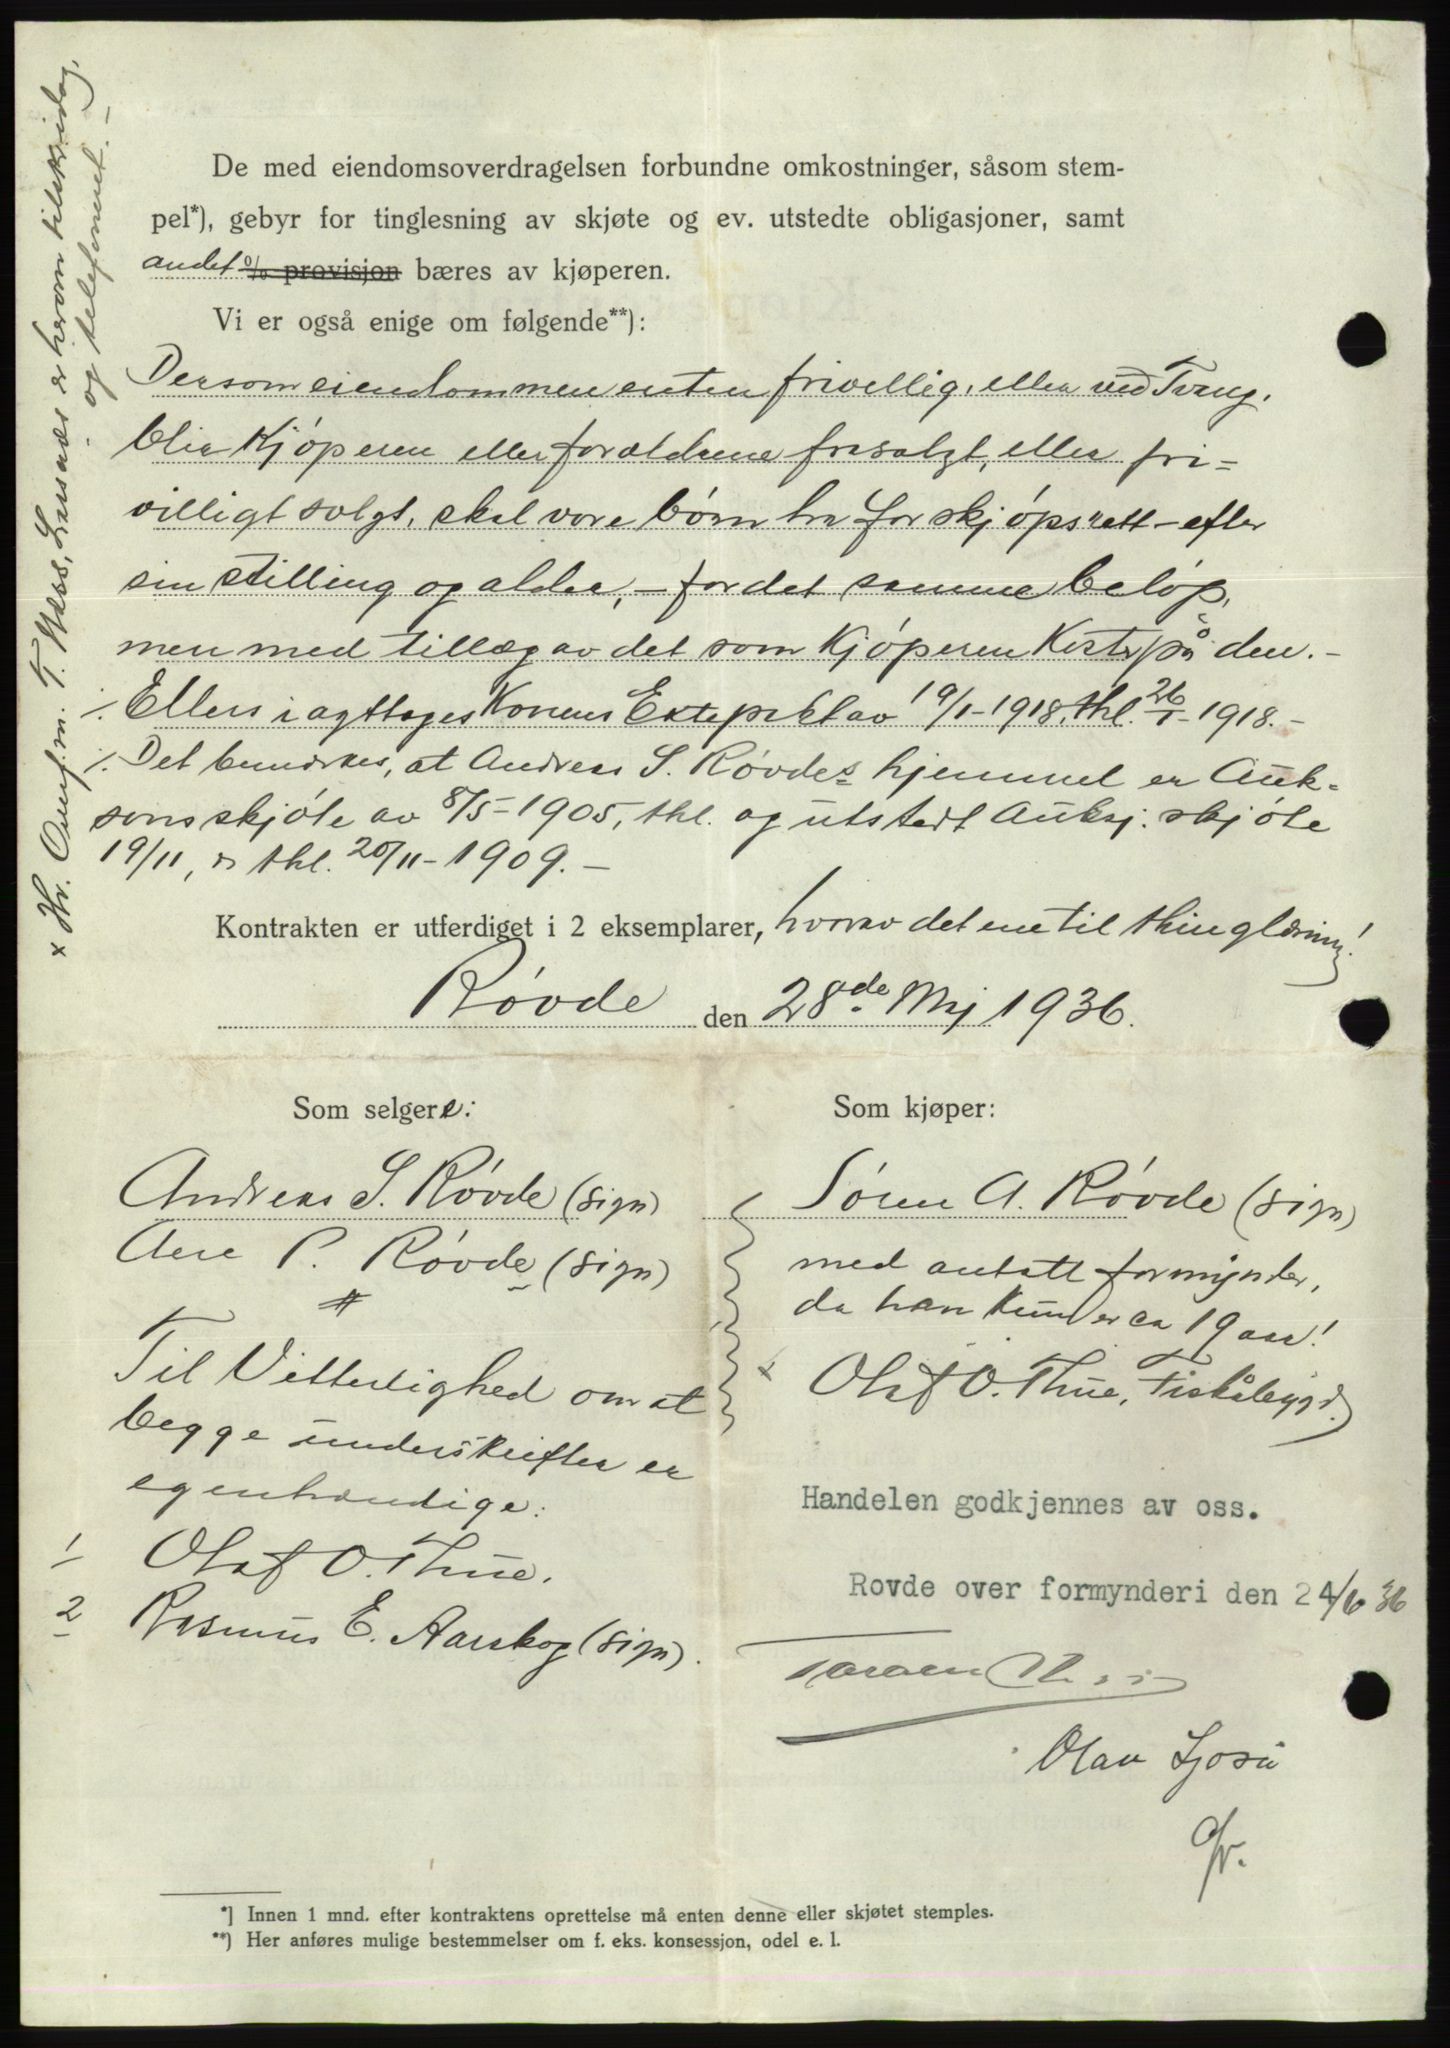 De med eiendomsoverdragelsen forbundne omkostninger, såsom stem-
pel*), gebyr for tinglesning av skjøte og ev. utstedte obligasjoner, samt
andet % provisjon bæres av kjøperen.
Vi er også enige om følgende**):
Dersom eiendommen enten frivellig, eller ved Tvang,
blir Kjøperen eller forældrene frasalgt, eller fri-
villigt solgt, skal vore børn ha forskjøpsrett - efter
sin stilling og alder, - for det samme beløp,
men med tillæg av det som Kjøperen Koster på den. -
./. Ellers iagttages Konens av 19/1-1918, thl. 26/1-1918. -
./. Det bemerkes, at Andreas S. Røvdes hjemmel er Auk-
sonsskjøte av 8/5-1905, thl. og utstedt Auksj. skjøte
19/11, thl. 20/11-1909. -
Kontrakten er utferdiget i 2 eksemplarer, hvorav det ene til thinglæsning!
Røvde den 28de Maj 1936.
Som selgere:
Andreas S. Røvde (sign)
Ane P. Røvde (sign)
#
Til Vitterlighed om at
begge underskrifter er
egenhændige:
1/ Olaf O. Thue.
2 Rasmus E. Aarskog (sign).
Som kjøper:
Søren A. Røvde (sign)
med antatt formynder,
da han kun er ca 19 aar!
x Olaf O. Thue, Fiskåbygd.)
Handelen godkjennes av oss.
Rovde over formynderi den 24/6 36
Olav
*) Innen 1 mnd. efter kontraktens oprettelse må enten denne eller skjøtet stemples.
**) Her anføres mulige bestemmelser om f. eks. konsessjon, odel e. l.
x Hr. T. Larsnæs er herom tilskr. idag,
og telefonert. -